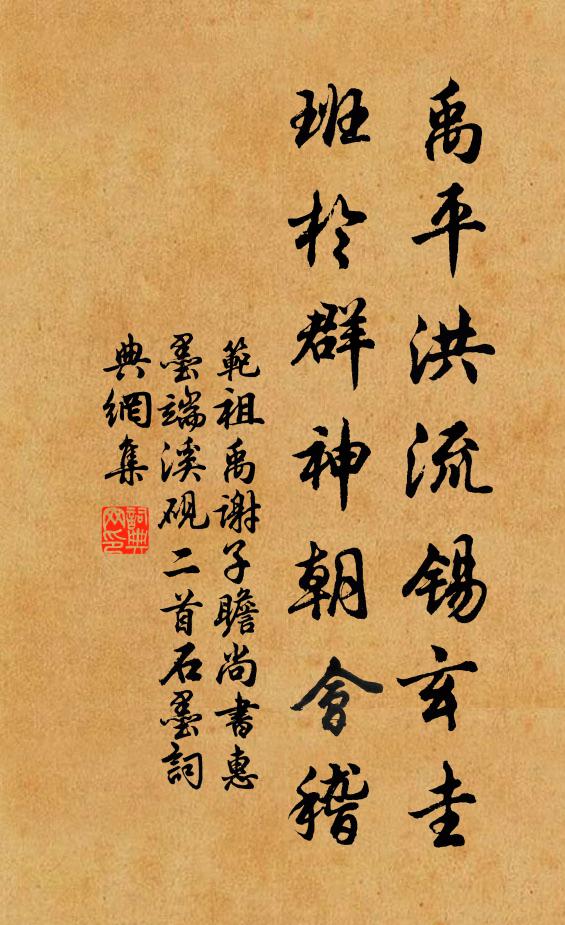 禹平洪流錫玄圭
班於群神朝會稽
範祖禹謝子瞻尚書惠
墨端溪硯二首石墨詞
典網集
詞典
网印